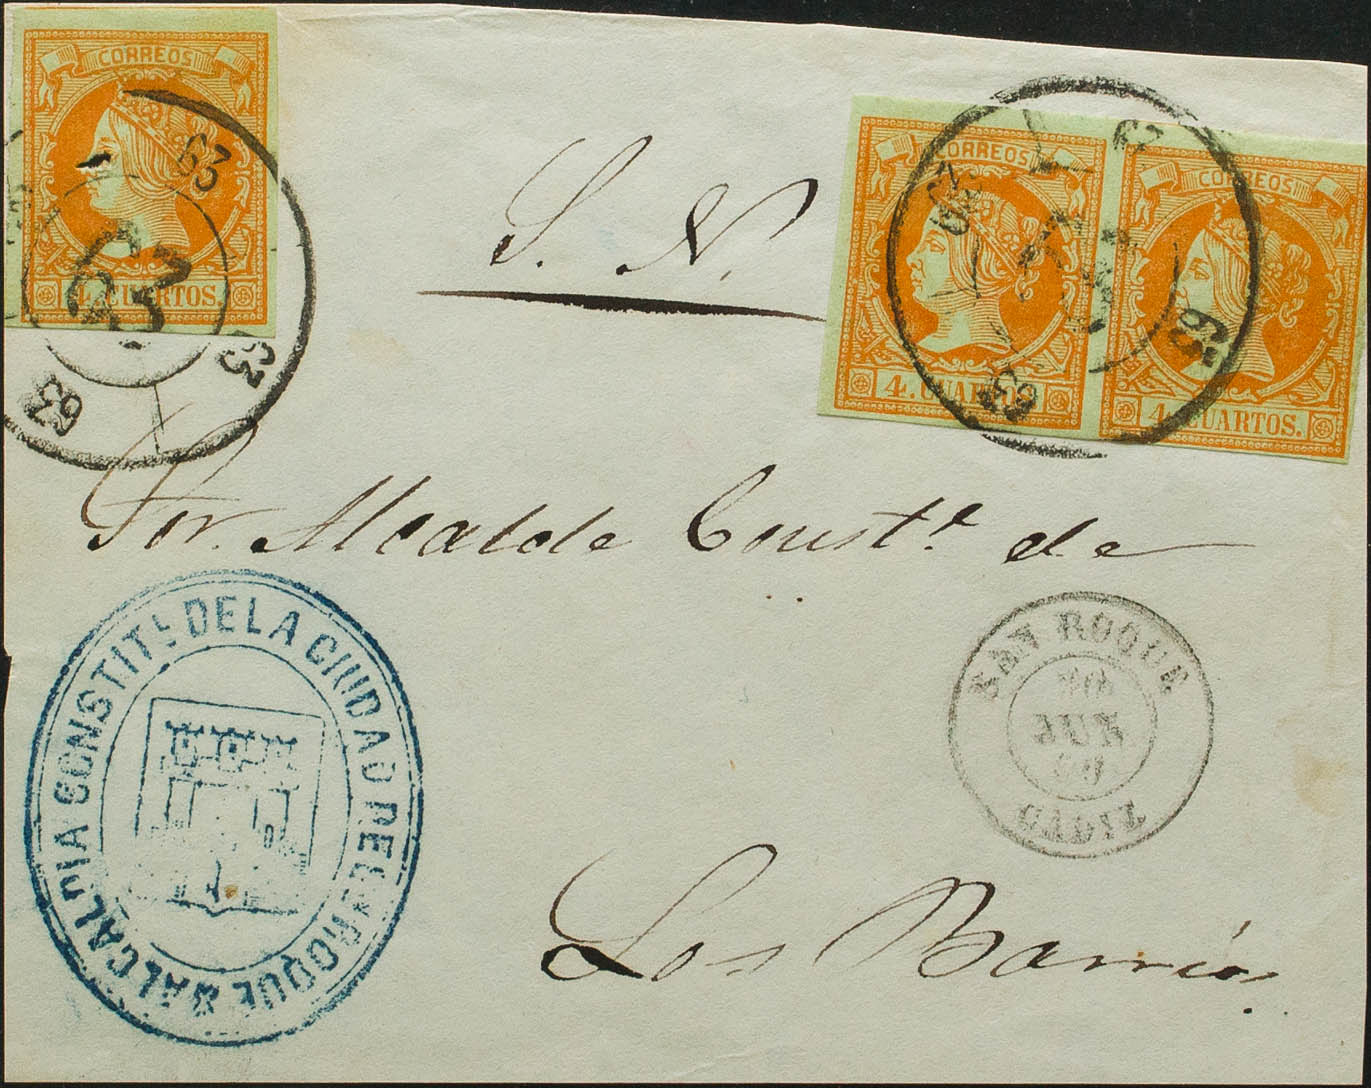 CORREOS
4. CUARTOS.
63
63
63
63
S. N.
CORREOS
4. CUARTOS.
CORREOS
4. CUARTOS.
63
63
63
63
Sor. Alcalde Constl. de
ALCALDIA CONSTITL DE LA CIUDAD DE Sn ROQUE
SAN ROQUE
JUN
CADIZ
Los Barrios